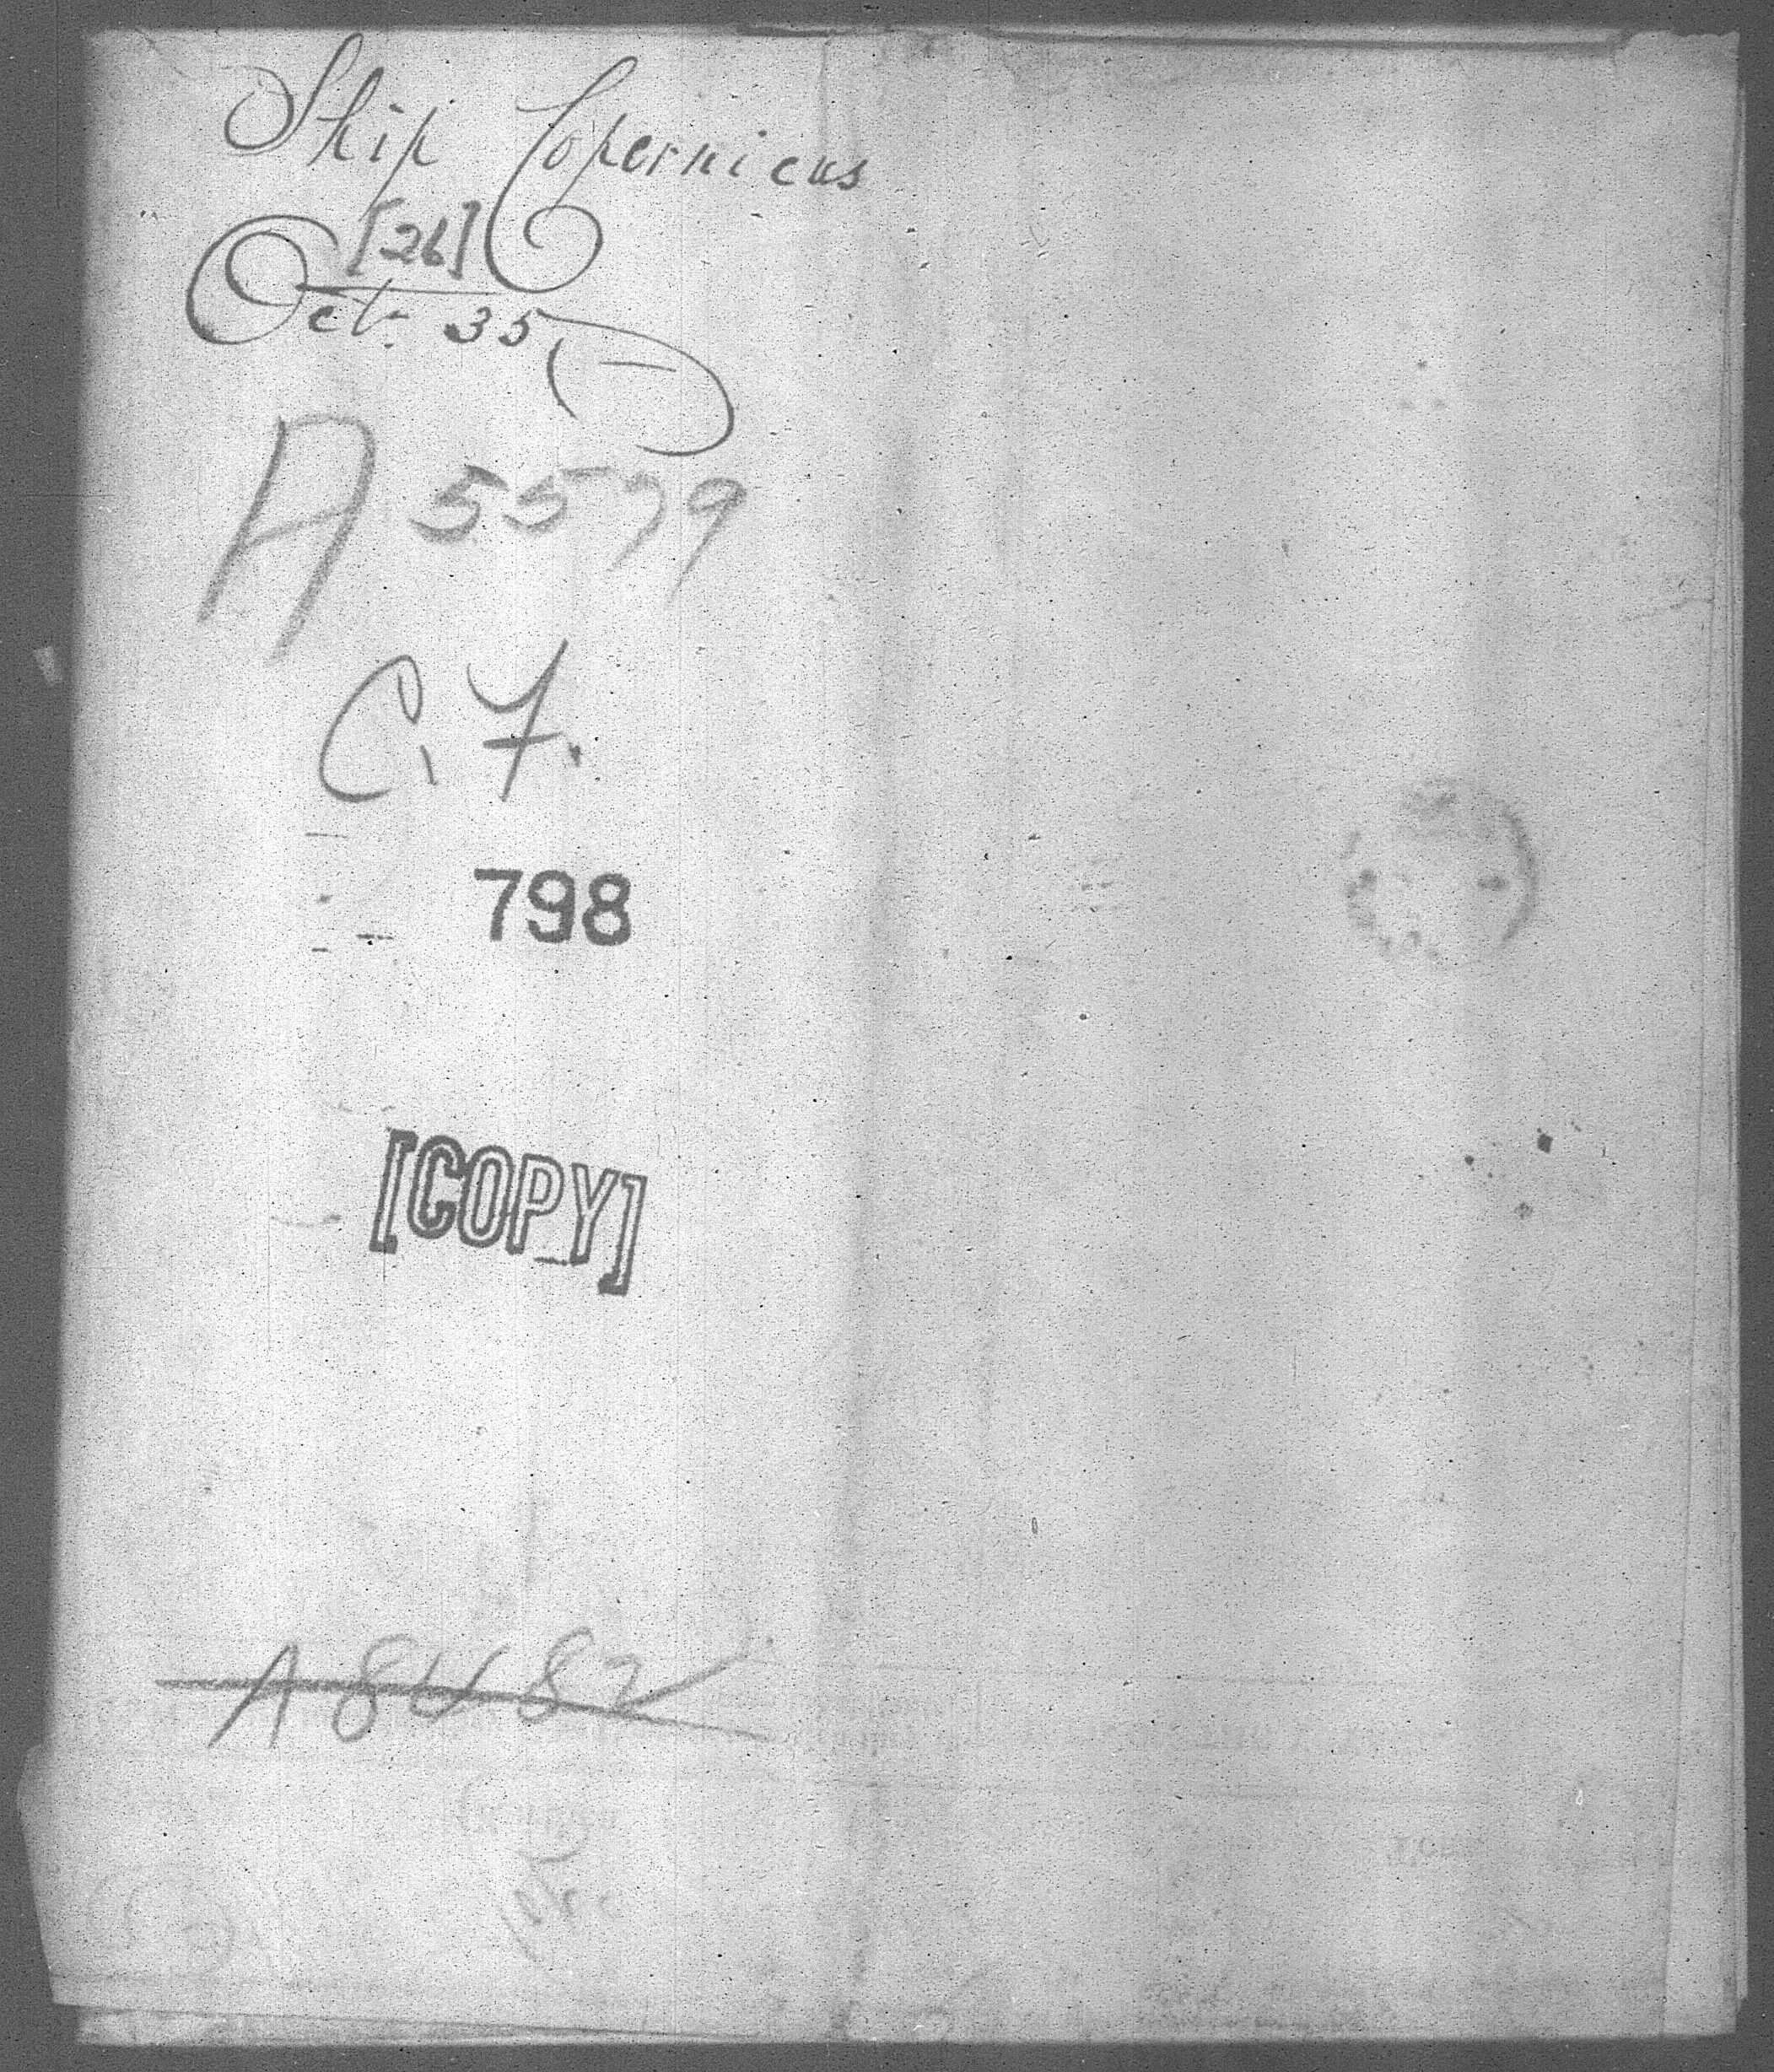 Ship Copernicus
[26]
Oct. 35
A 5579
C. 7.
798
[COPY]
A 8482